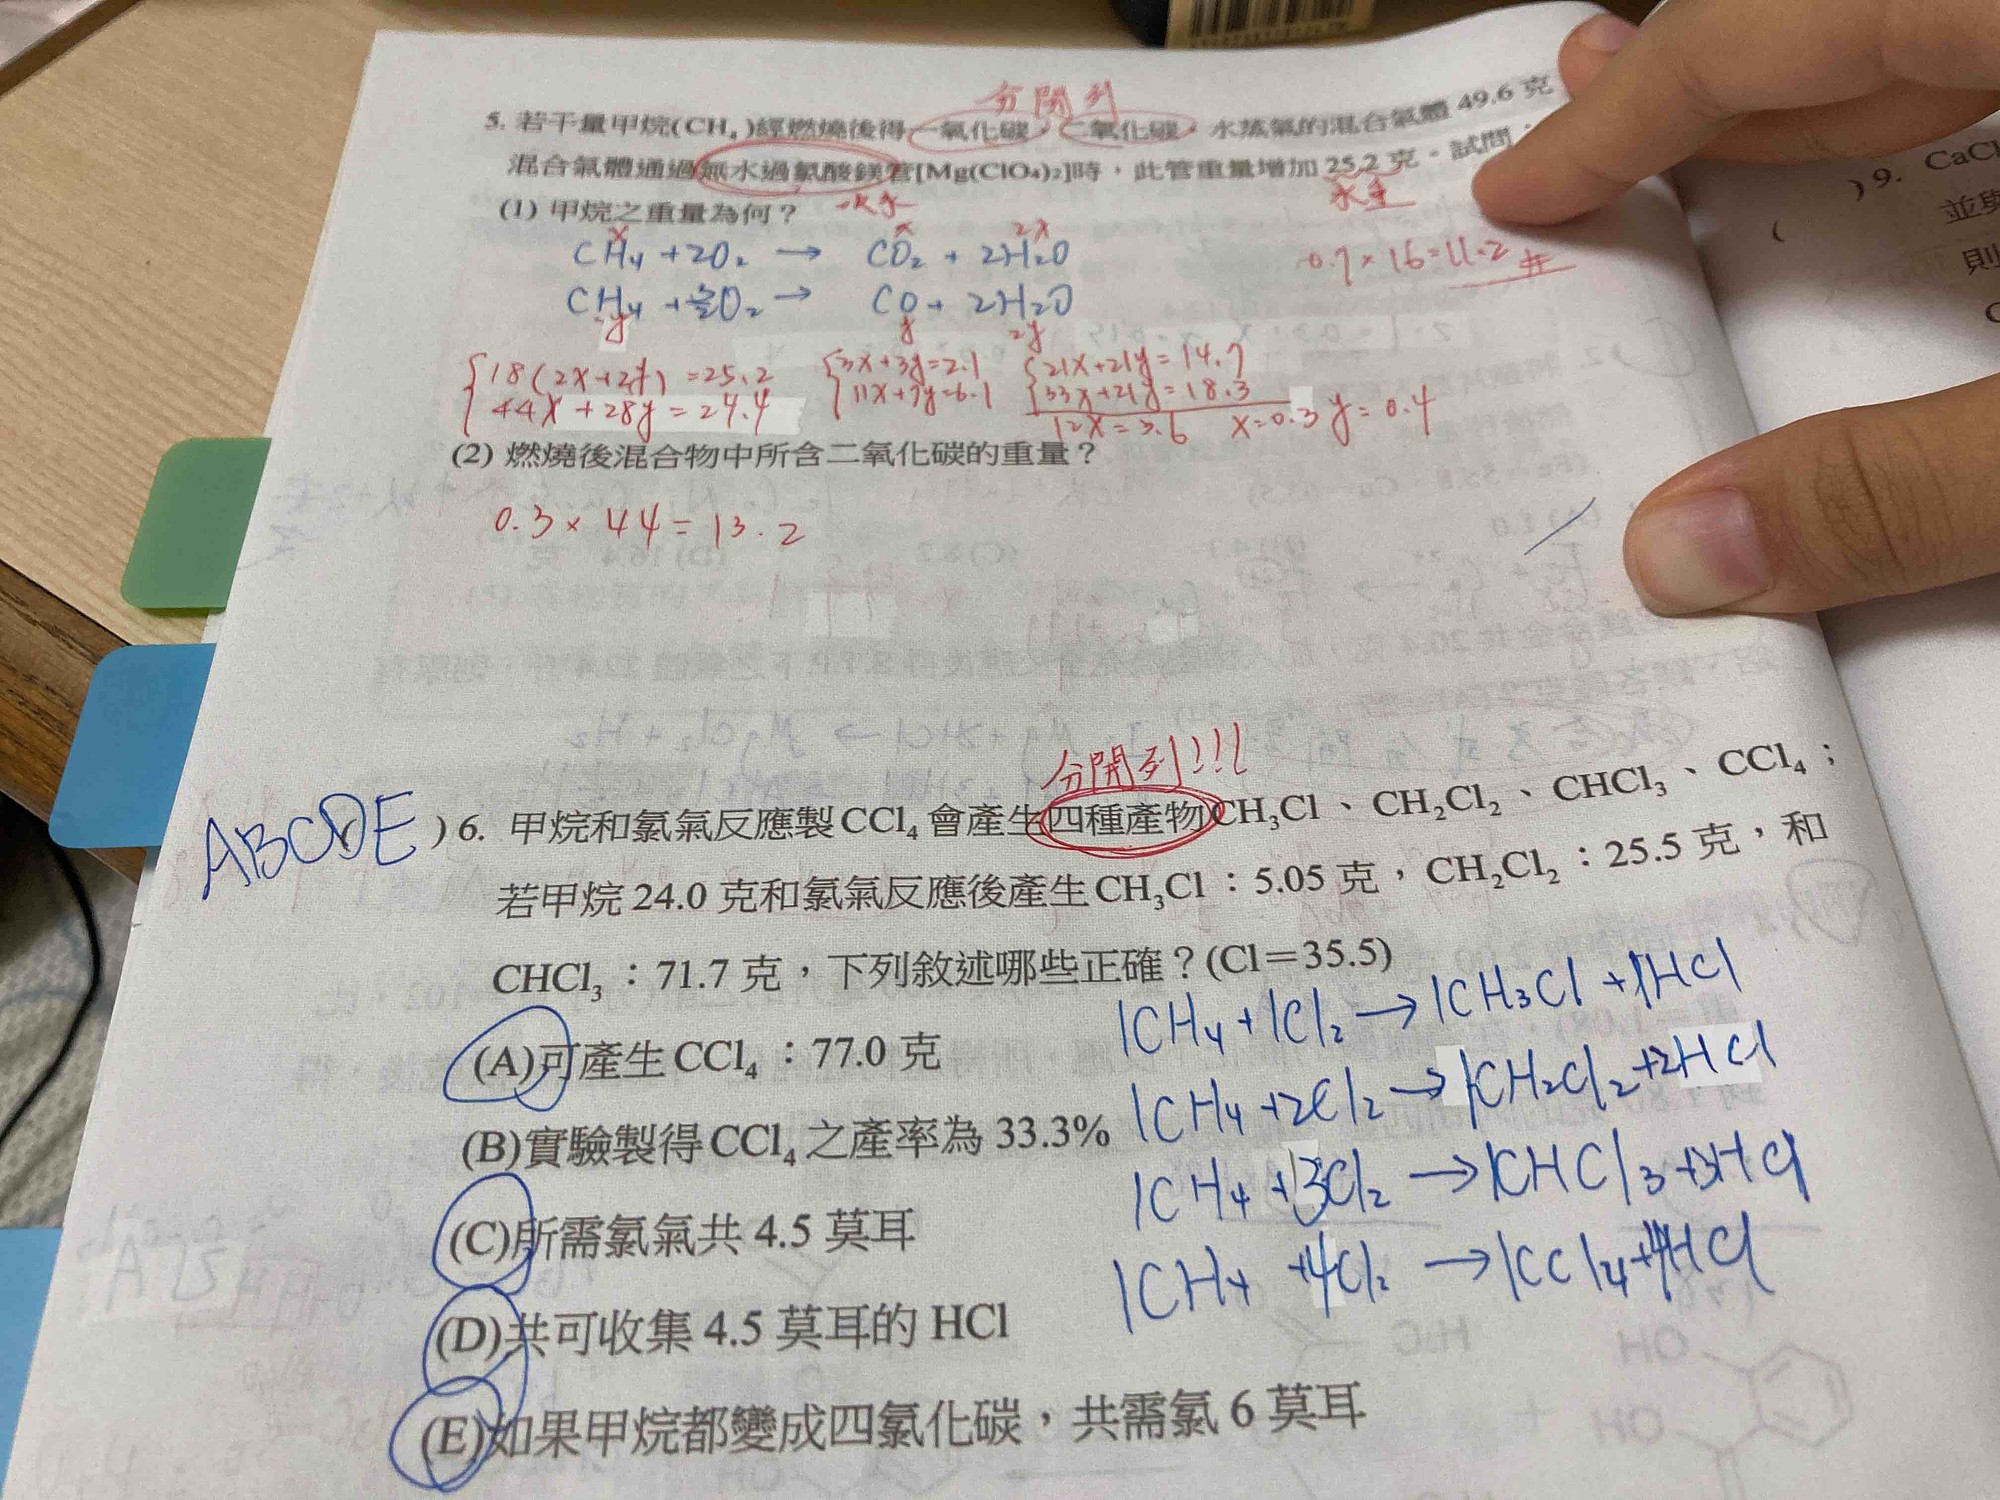 分開列
5. 若干量甲烷(CH₄)經燃燒後得一氧化碳，二氧化碳，水蒸氣的混合氣體 49.6 克
混合氣體通過無水過氯酸鎂管[Mg(ClO₄)₂]時，此管重量增加 25.2 克。試問：
吸水
水重
(1) 甲烷之重量為何？
x x 2x
CH₄ + 2O₂ → CO₂ + 2H₂O
0.7 × 16 = 11.2 #
CH₄ + 3/2 O₂ → CO + 2H₂O
y y 2y
{18(2x+2y) = 25.2 {3x+3y=2.1 {21x+21y = 14.7
44x + 28y = 24.4 11x+7y=6.1 33x+21y = 18.3
12x = 3.6 x=0.3 y=0.4
(2) 燃燒後混合物中所含二氧化碳的重量？
0.3 × 44 = 13.2
分開列!!!
ABCDE )6. 甲烷和氯氣反應製CCl₄會產生四種產物CH₃Cl、CH₂Cl₂、CHCl₃、CCl₄；
若甲烷 24.0 克和氯氣反應後產生CH₃Cl：5.05 克，CH₂Cl₂：25.5 克，和
CHCl₃：71.7 克，下列敘述哪些正確？(Cl＝35.5)
1CH₄ + 1Cl₂ → 1CH₃Cl + 1HCl
(A)可產生CCl₄：77.0 克
1CH₄ + 2Cl₂ → 1CH₂Cl₂ + 2HCl
(B)實驗製得CCl₄之產率為 33.3%
1CH₄ + 3Cl₂ → 1CHCl₃ + 3HCl
(C)所需氯氣共 4.5 莫耳
1CH₄ + 4Cl₂ → 1CCl₄ + 4HCl
(D)共可收集 4.5 莫耳的 HCl
(E)如果甲烷都變成四氯化碳，共需氯 6 莫耳
)9. CaCl
並與
則
(